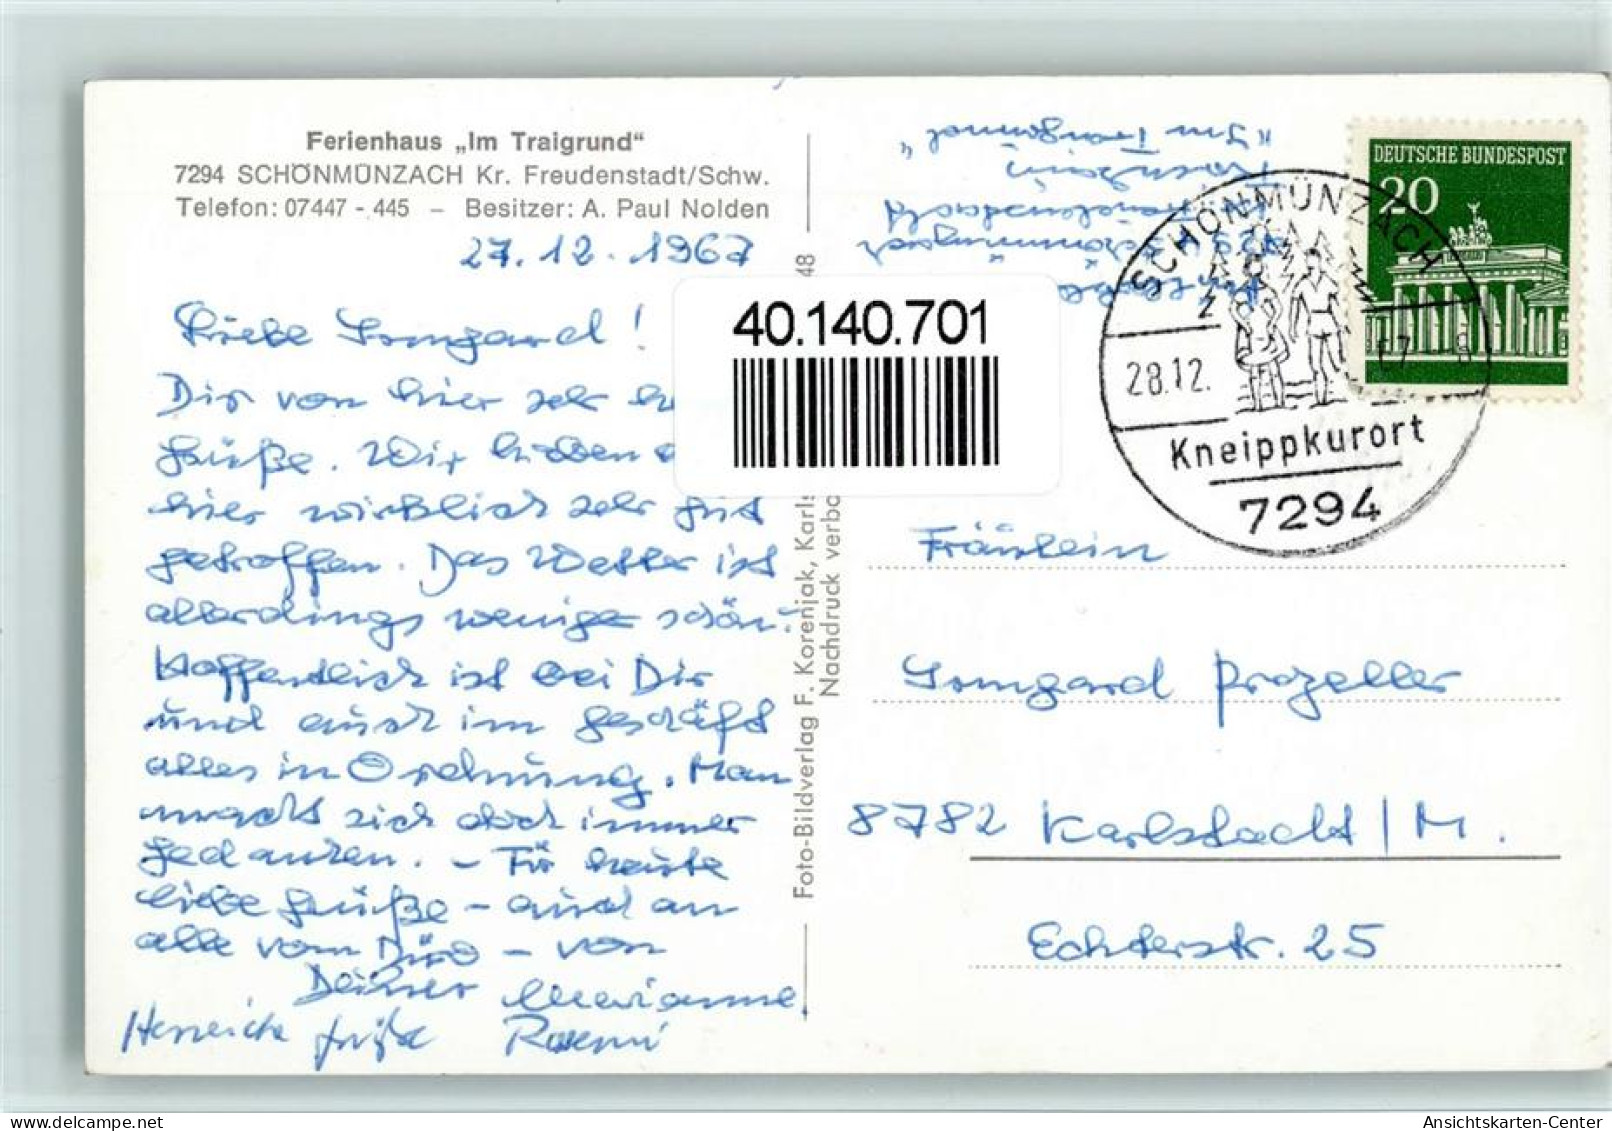 Ferienhaus „Im Traigrund“
7294 SCHÖNMÜNZACH Kr. Freudenstadt/Schw.
Telefon: 07447 - 445 – Besitzer: A. Paul Nolden
27.12.1967
Liebe Irmgard!
Dir von hier sehr
Grüße. Wir haben
hier wirklich sehr gut
getroffen. Das Wetter ist
allerdings weniger schön.
Hoffentlich ist bei Dir
und auch im Geschäft
alles in Ordnung. Man
macht sich doch immer
Gedanken. – Für heute
liebe Grüße – auch an
alle vom Büro – von
Deiner Marianne
Grüße
48
Foto-Bildverlag F. Korenjak, Karls
Nachdruck verbo
"Im Traigrund"
40.140.701
DEUTSCHE BUNDESPOST
20
SCHÖNMÜNZACH
28.12. 67
Kneippkurort
7294
Fräulein
Irmgard Prozeller
8782 Karlstadt/M.
Echterstr. 25
40140701
Ansichtskarten-Center